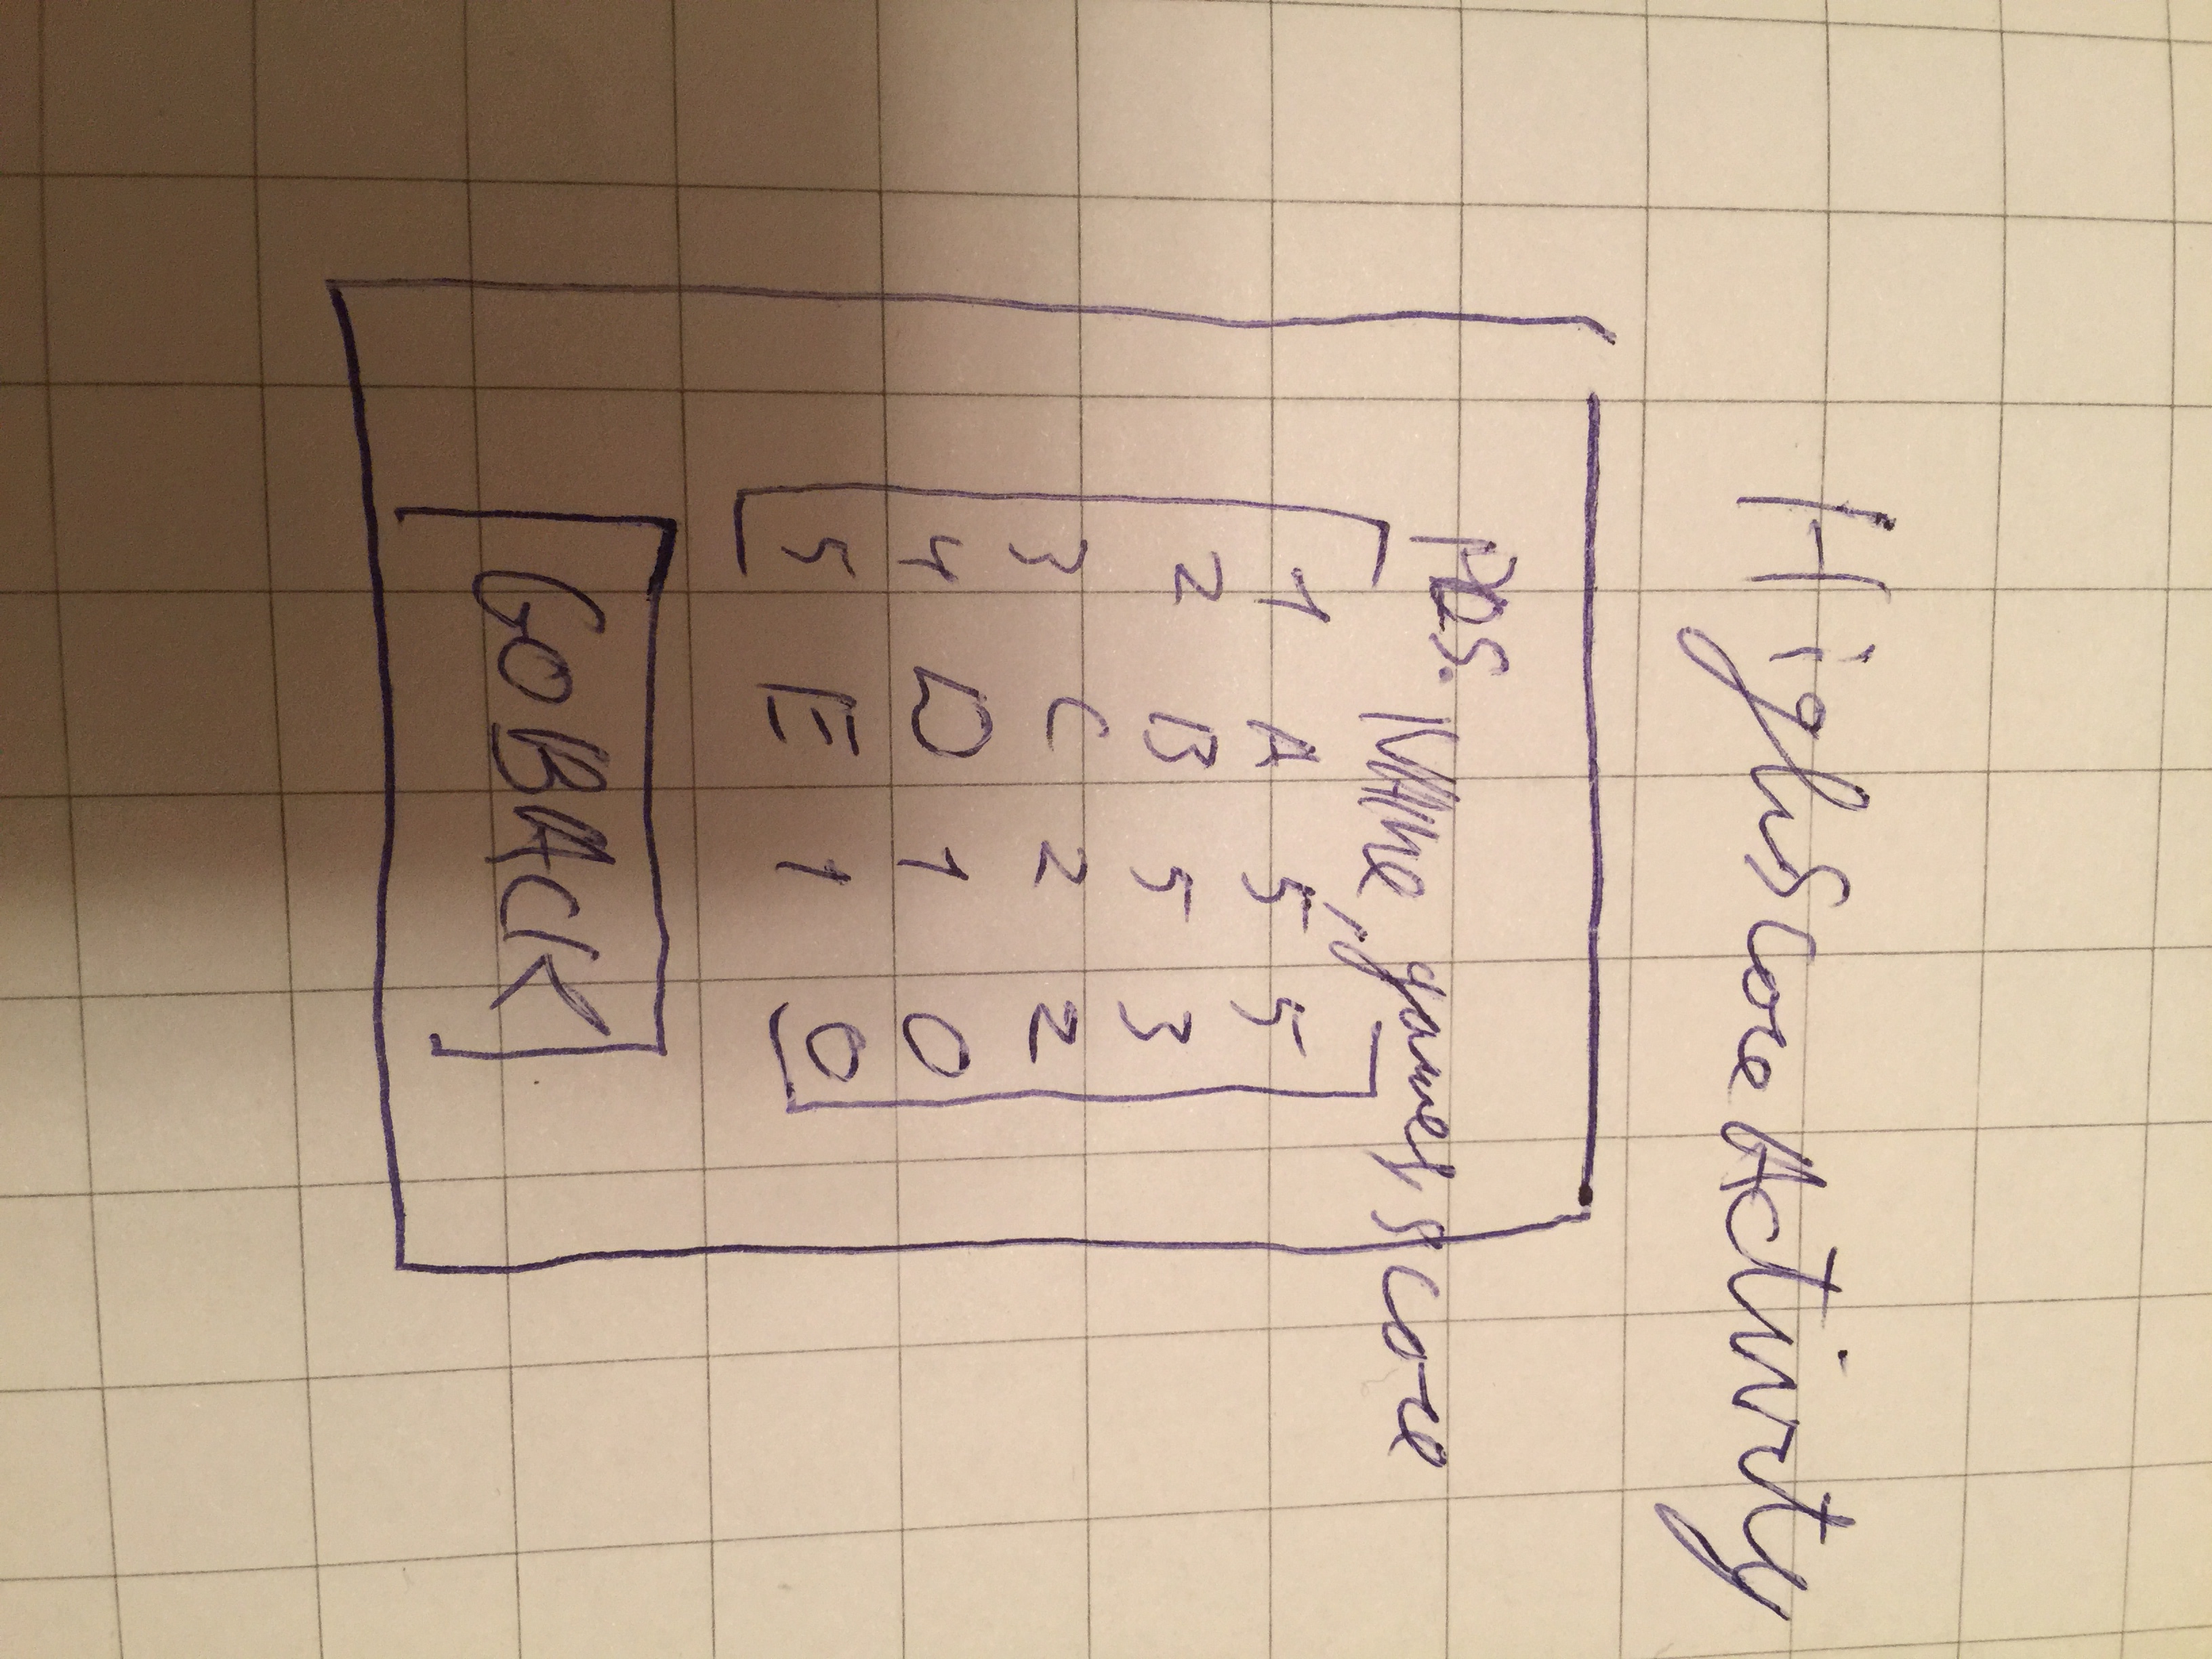 HighScoreActivity
pos. Name, games, score
1 A 5 5
2 B 5 3
3 C 2 2
4 D 1 0
5 E 1 0
GOBACK